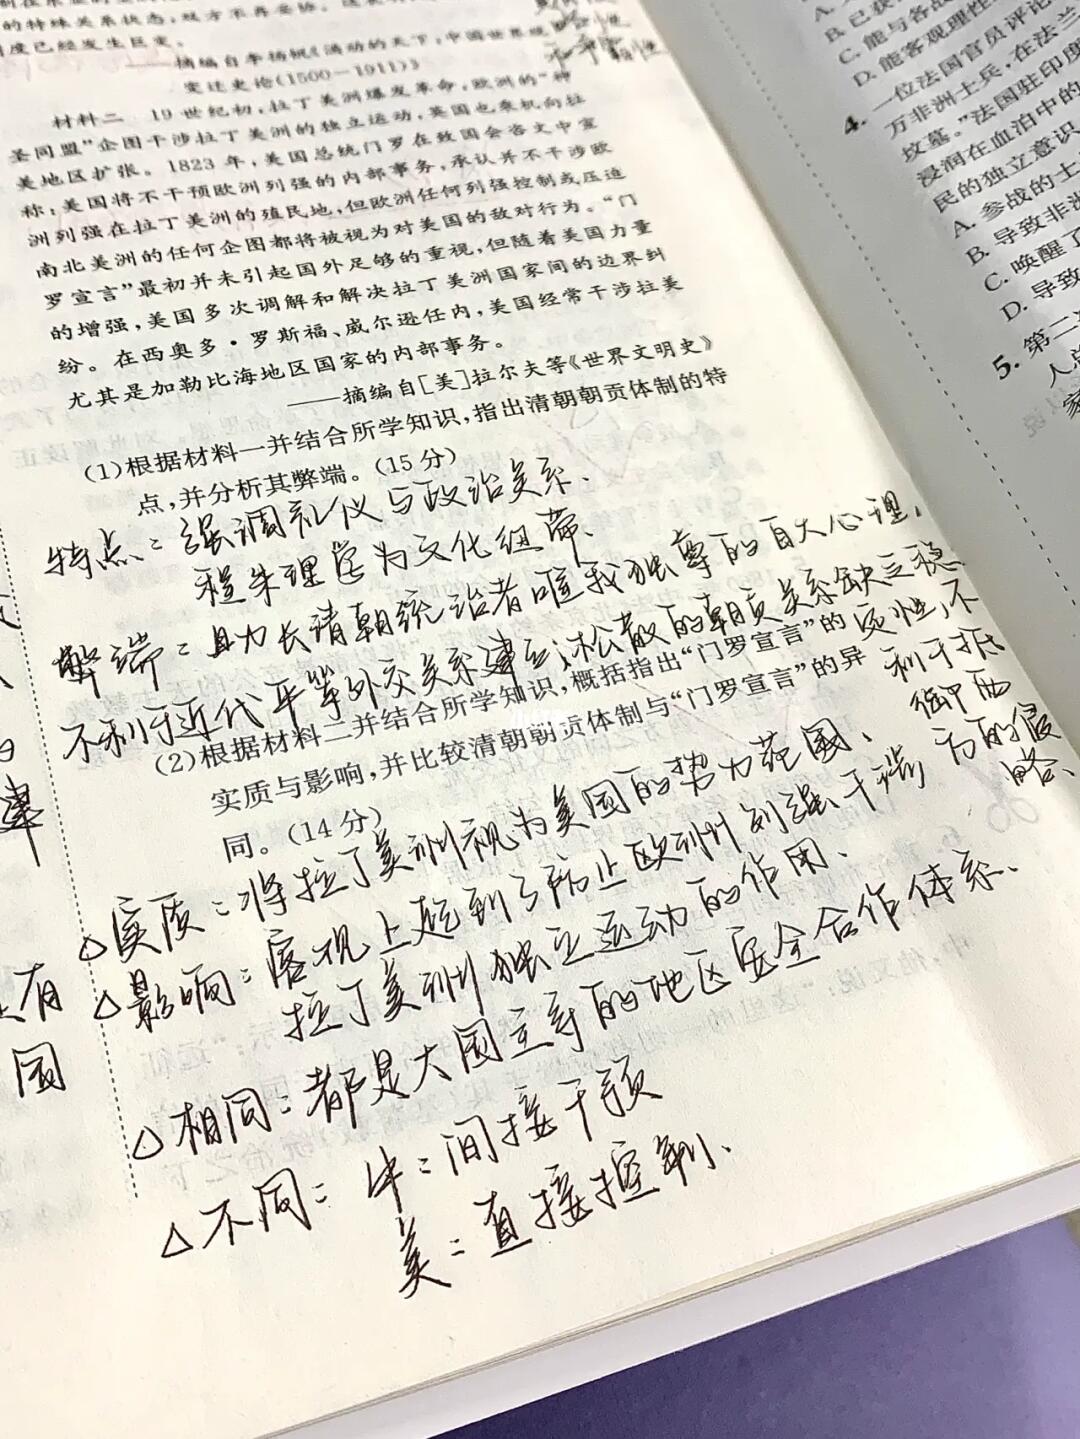 的特殊关系状态,双方不再妥协。
度已经发生巨变。
——摘编自李扬帆《涌动的天下:中国世界观
变迁史论(1500—1911)》
材料二 19世纪初,拉丁美洲爆发革命,欧洲的“神
圣同盟”企图干涉拉丁美洲的独立运动,英国也乘机向拉
美地区扩张。1823年,美国总统门罗在致国会咨文中宣
称:美国将不干预欧洲列强的内部事务,承认并不干涉欧
洲列强在拉丁美洲的殖民地,但欧洲任何列强控制或压迫
南北美洲的任何企图都将被视为对美国的敌对行为。“门
罗宣言”最初并未引起国外足够的重视,但随着美国力量
的增强,美国多次调解和解决拉丁美洲国家间的边界纠
纷。在西奥多·罗斯福、威尔逊任内,美国经常干涉拉美
尤其是加勒比海地区国家的内部事务。
——摘编自[美]拉尔夫等《世界文明史》
(1)根据材料一并结合所学知识,指出清朝朝贡体制的特
点,并分析其弊端。(15分)
特点:强调礼仪与政治关系、
程朱理学为文化纽带、
弊端:助长清朝统治者唯我独尊的自大心理,
不利于近代平等外交关系建立;松散的朝贡关系缺乏稳
定性,不
利于抵
御西
方的侵
略.
(2)根据材料二并结合所学知识,概括指出“门罗宣言”的
实质与影响,并比较清朝朝贡体制与“门罗宣言”的异
同。(14分)
△实质:将拉丁美洲视为美国的势力范围、
△影响:客观上起到了防止欧洲列强干涉
拉丁美洲独立运动的作用、
△相同:都是大国主导的地区安全合作体系、
△不同:中:间接干预
美:直接控制、
有
国
B. 已获
C. 能与各战
D. 能客观理性
4. 一位法国官员评论
万非洲士兵,在法兰
坟墓。”法国驻印度
浸润在血泊中的
民的独立意识
A. 参战的士
B. 导致非洲
C. 唤醒了
D. 导致
5. 第二次